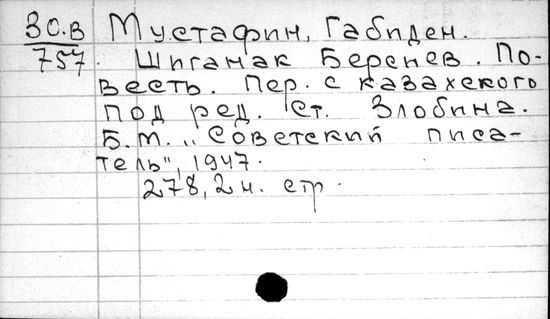 30.В Мустафин, Габиден.
757. Шиганак Берсиев. По-
весть. Пер. с казахского
под ред. Ст. Злобина.
Б.м. "Советский писа-
тель", 1947.
278, 2 н. стр.